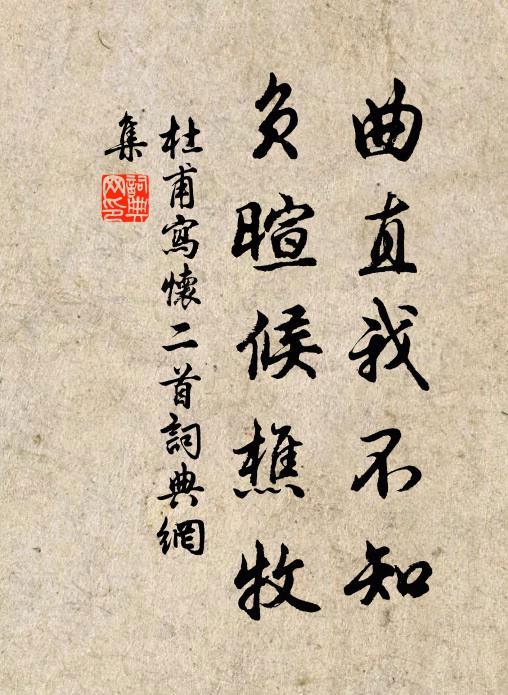 曲直我不知
負暄候樵牧
杜甫寫懷二首詞典網
集
詞典
網印